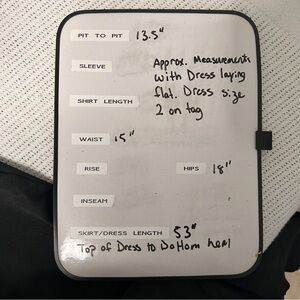 PIT TO PIT 13.5"
SLEEVE
Approx. Measurements
with Dress laying
flat. Dress size
2 on tag
SHIRT LENGTH
WAIST 15"
RISE
HIPS 18"
INSEAM
SKIRT/DRESS LENGTH 53"
Top of Dress to Bottom hem